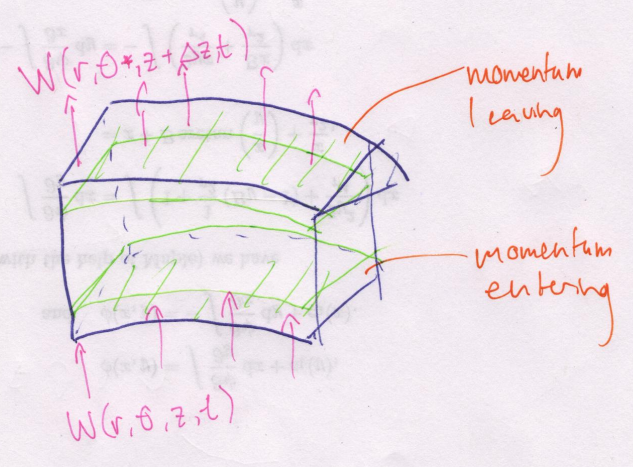 W(r,θ*,z+Δz,t)
momentum
leaving
momentum
entering
W(r,θ,z,t)